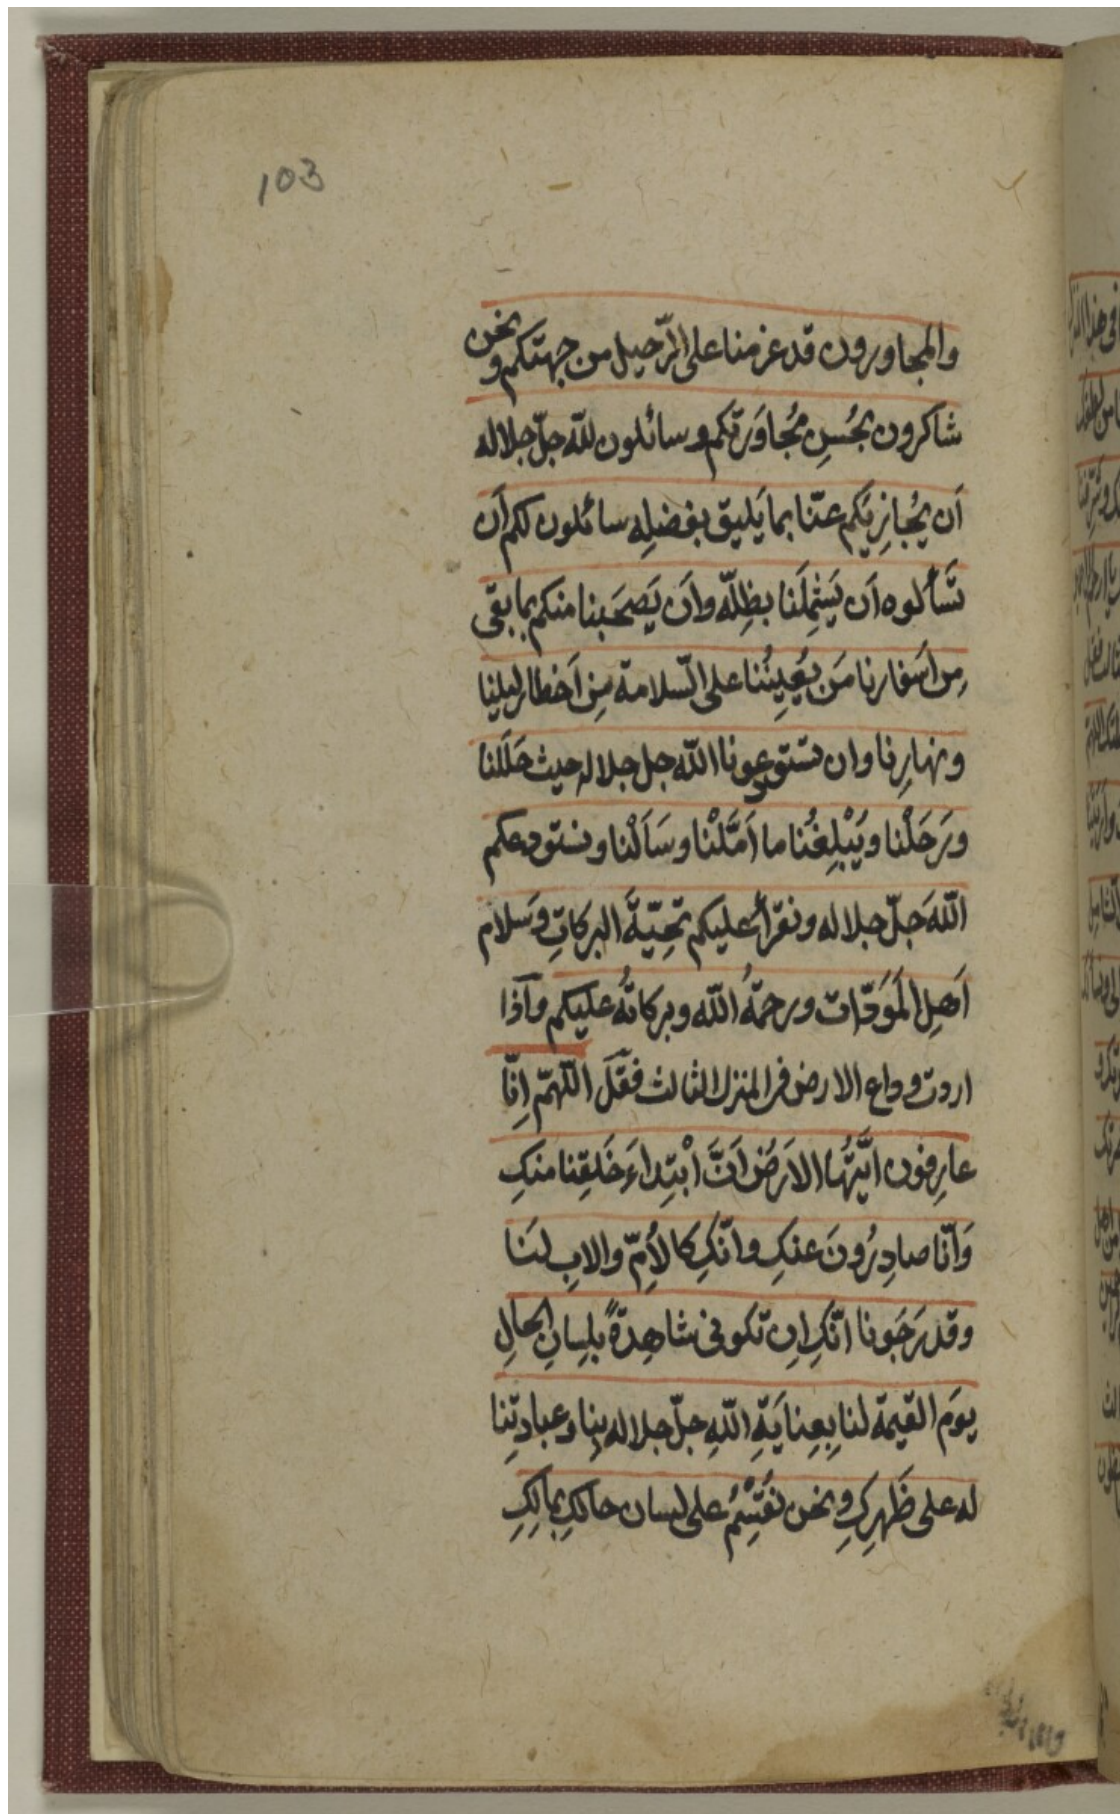 103
والمجاورون قد عزمنا على الرّحيل من جهتكم ونحن
شاكرون بحُسنِ مُجاوَرتكم وسائلون للّه جلّ جلاله
اَن يُجازِيَكم عنّا بما يَليق بفضلِه سائلون لكم اَن
تَسَألوه اَن يَشمِلَنا بظِلّه واَن يَصحَبنا منكم بما بقى
مِن اَسَفارنا مَن يُعِينُنا على السّلامة مِن اَخطار ليلِنا
ونهارِنا وان تستودعونا اللّه جل جلاله حيث حَلَلنا
ورَحَلْنا ويَبْلِغُنا ما اَمَّلْنا وسَاَلْنا ونستودعكم
اللّهَ جلّ جلاله ونقرأُ عليكم تحِيّةَ البركاتِ وسَلام
اَهلِ المَوَدّات ورحمَةُ اللّه وبركاتُه عليكم وآذا
اردت وداع الارض فى المنزل الثالث فقُل اللّهمّ اِنّا
عارِفون ايّتُها الارَضُ اَنَّ اْبتِداءَ خَلقِنا منكِ
وَاَنّا صادِرُونَ عنكِ وانّكِ كالاُمِّ والابِ لنَا
وقد رَجَونا انّكِ اِن تكونى شاهِدةً بلِسانِ الحالِ
يومَ القيمة لنا بِعِنايَةِ اللّهِ جلّ جلاله بِنا وعبادتِنا
له على ظَهرِكِ ونحن نُقْسِمُ على لسان حالكِ بمالِكِ